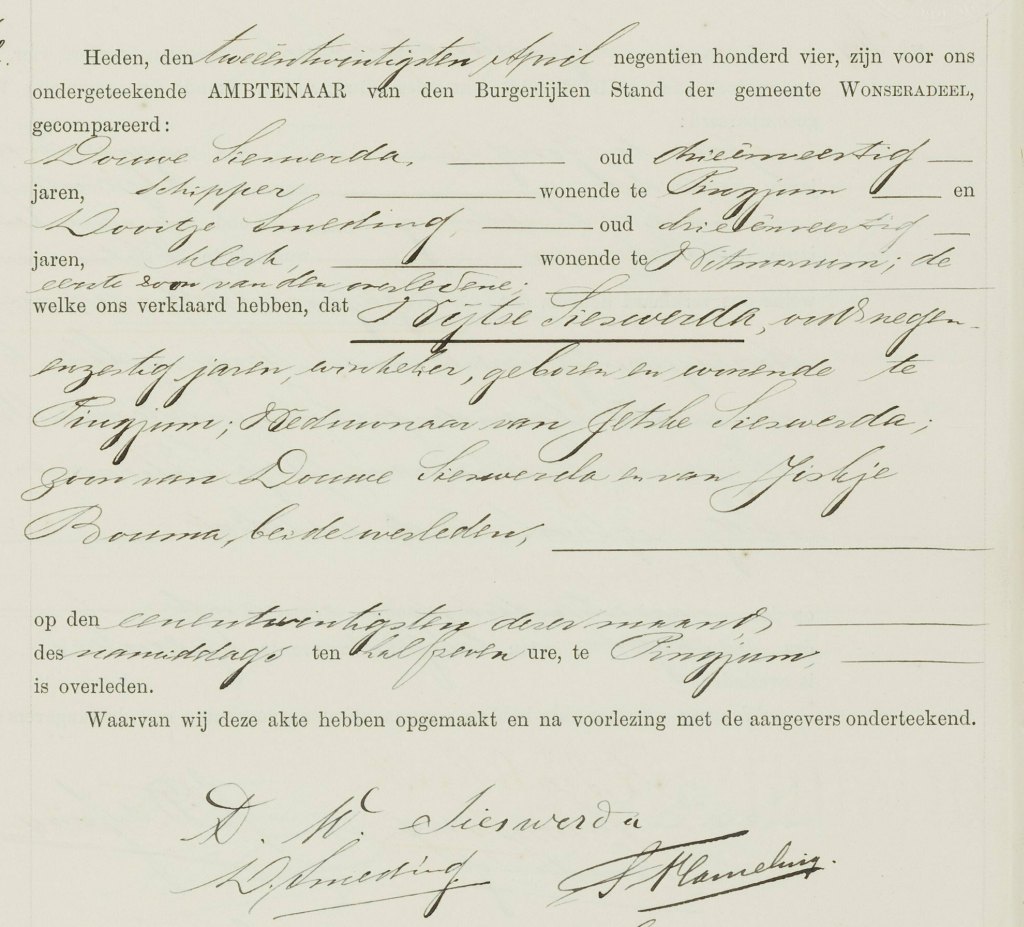 Heden, den tweeentwintigsten April negentien honderd vier, zijn voor ons
ondergeteekende AMBTENAAR van den Burgerlijken Stand der gemeente WONSERADEEL,
gecompareerd:
Douwe Sieswerda, oud drieënveertig
jaren, schipper wonende te Pingjum en
Dooitje Smeding, oud drieënveertig
jaren, klerk, wonende te Witmarsum; de
eerste zoon van den overledene;
welke ons verklaard hebben, dat Wijtse Sieswerda, oud negen-
enzestig jaren, winkelier, geboren en wonende te
Pingjum; Weduwnaar van Jetske Sieswerda;
zoon van Douwe Sieswerda en van Jiskje
Bouma, beide overleden,
op den eenentwintigsten dezer maand
des namiddags ten half zeven ure, te Pingjum,
is overleden.
Waarvan wij deze akte hebben opgemaakt en na voorlezing met de aangevers onderteekend.
D. W. Sieswerda
D. Smeding.